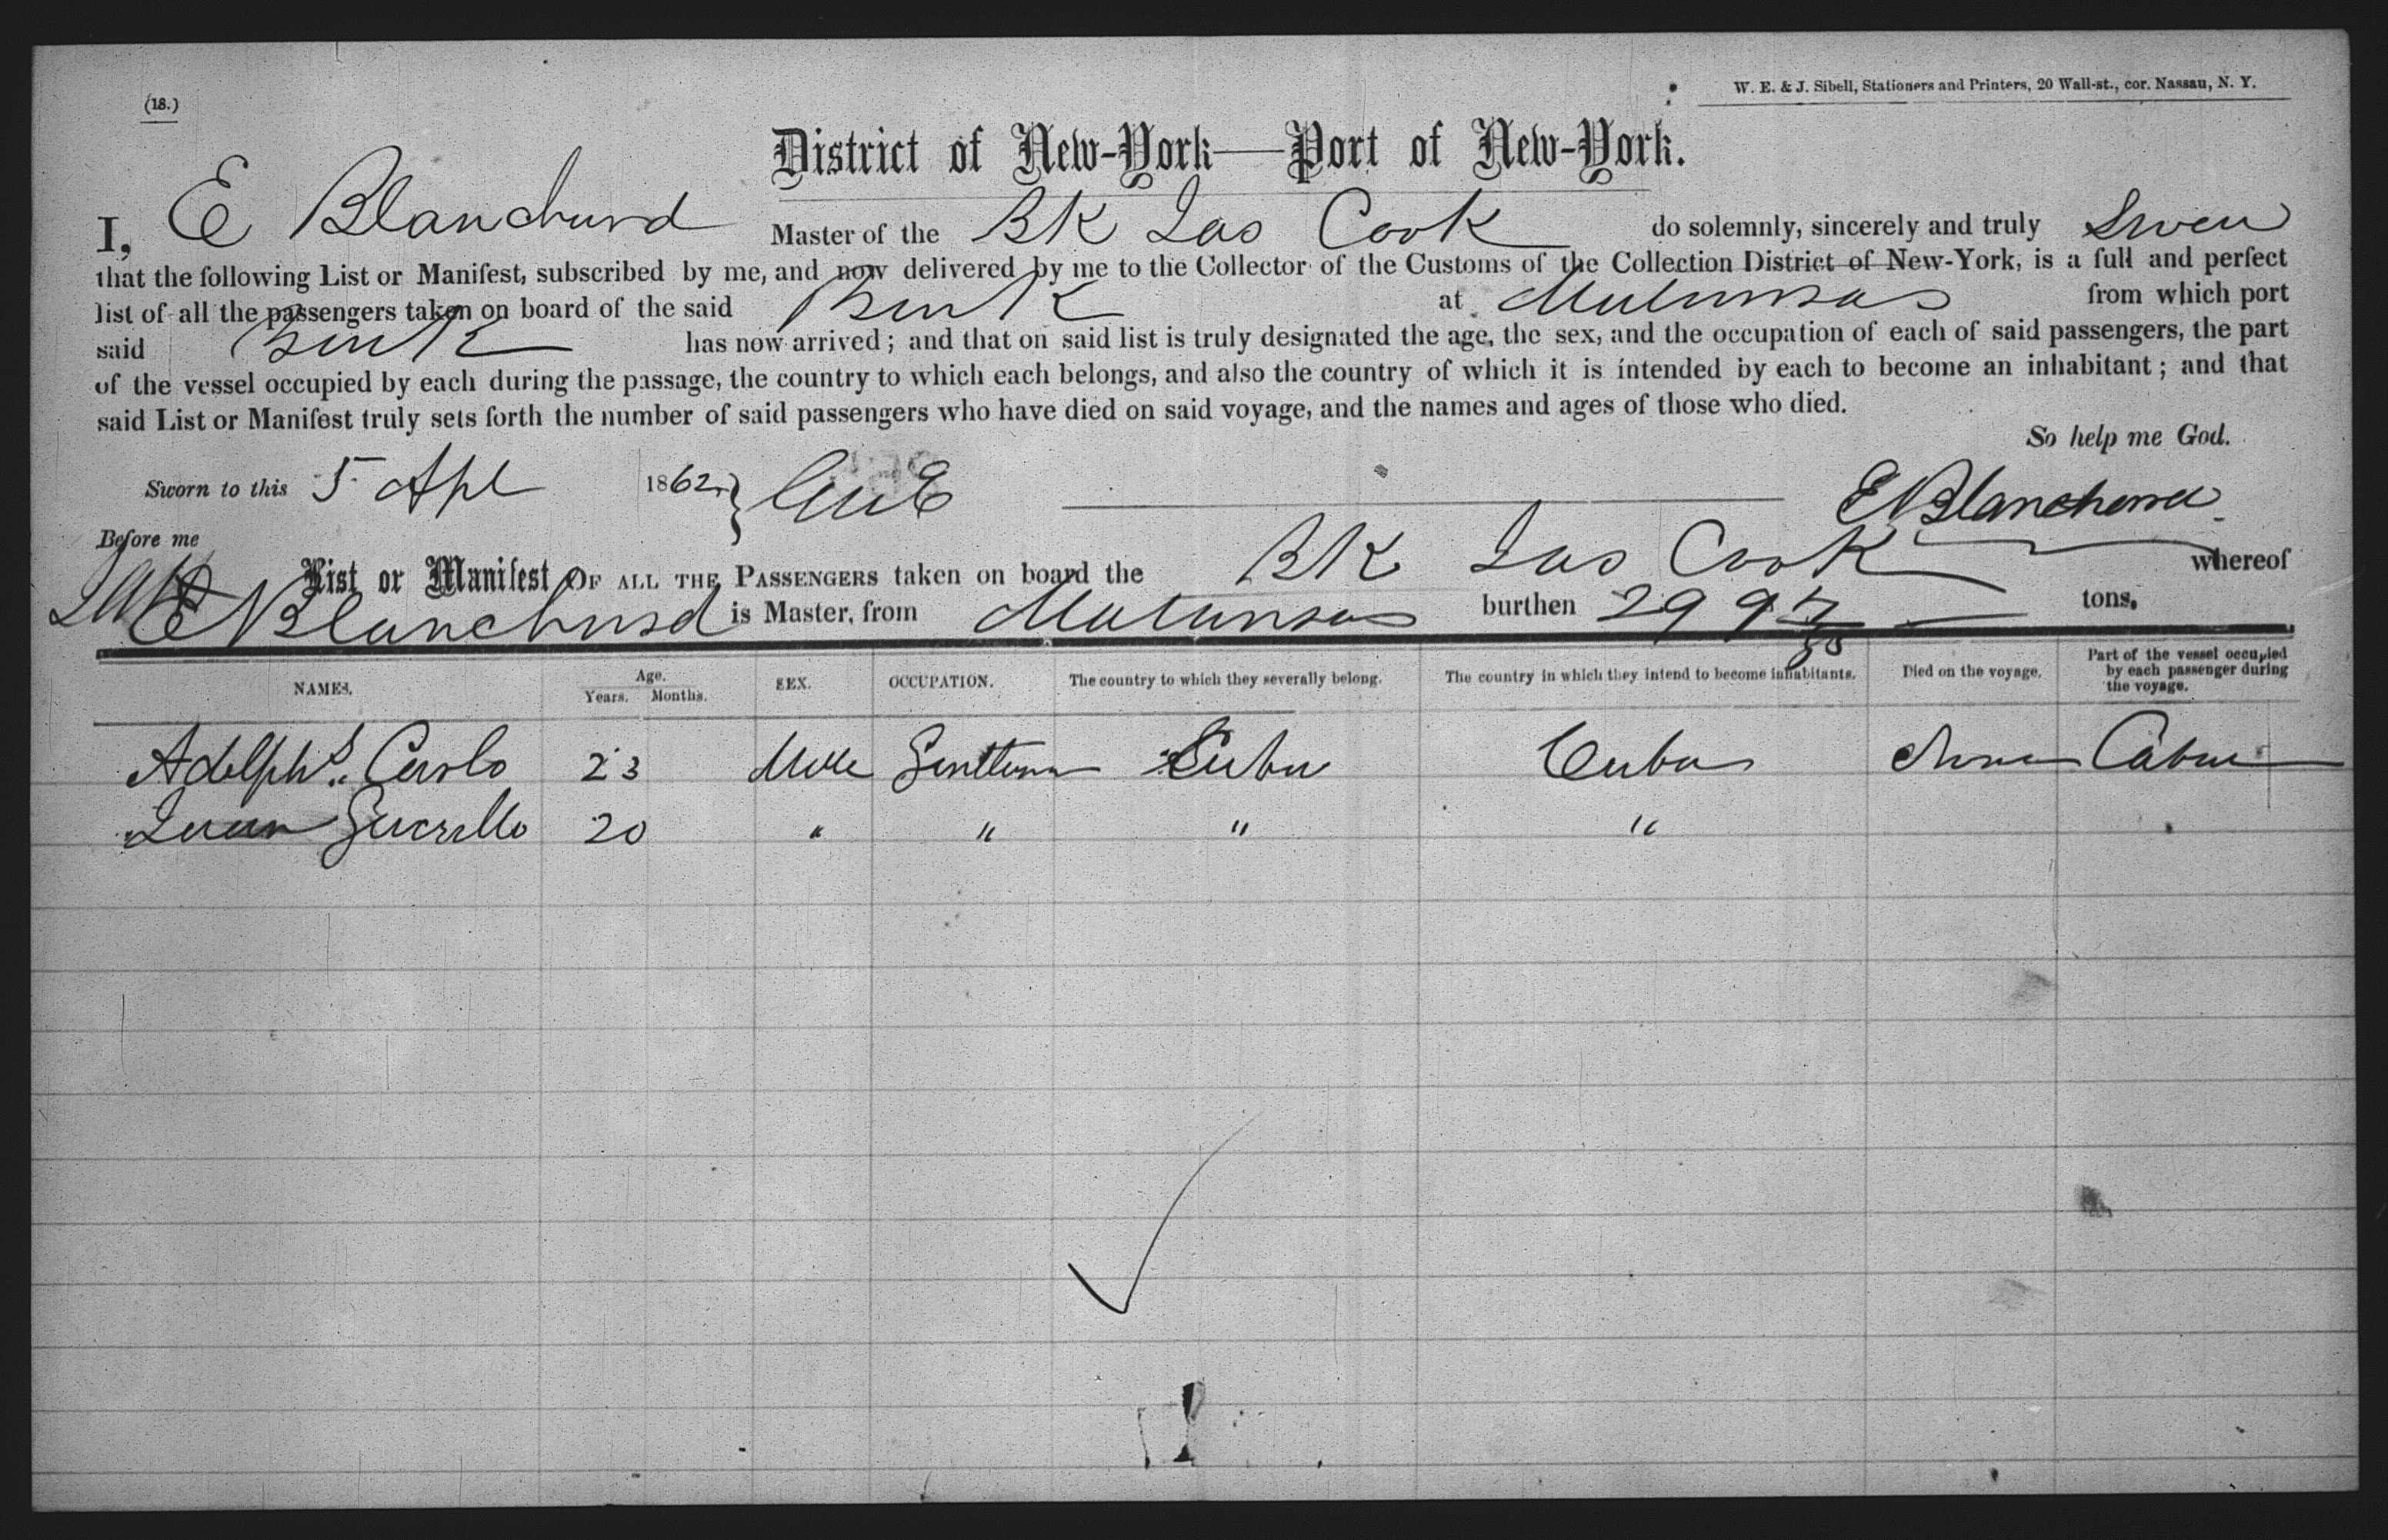 (18.)
W. E. & J. Sibell, Stationers and Printers, 20 Wall-st., cor. Nassau, N. Y.
District of New-York—Port of New-York.
I, E Blanchard Master of the BK Jas Cook do solemnly, sincerely and truly Swear
that the following List or Manifest, subscribed by me, and now delivered by me to the Collector of the Customs of the Collection District of New-York, is a full and perfect
list of all the passengers taken on board of the said Bark at Matanzas from which port
said Bark has now arrived; and that on said list is truly designated the age, the sex, and the occupation of each of said passengers, the part
of the vessel occupied by each during the passage, the country to which each belongs, and also the country of which it is intended by each to become an inhabitant; and that
said List or Manifest truly sets forth the number of said passengers who have died on said voyage, and the names and ages of those who died.
So help me God.
Sworn to this 5 Apl 1862 E Blanchard
Before me
List or Manifest OF ALL THE PASSENGERS taken on board the BK Jas Cook whereof
E Blanchard is Master, from Matanzas burthen 299 tons.
NAMES. Age. Years. Months. SEX. OCCUPATION. The country to which they severally belong. The country in which they intend to become inhabitants. Died on the voyage. Part of the vessel occupied by each passenger during the voyage.
Adolphs Carlo 23 Male Gentleman Cuba Cuba None Cabin
Juan 20 " " " "